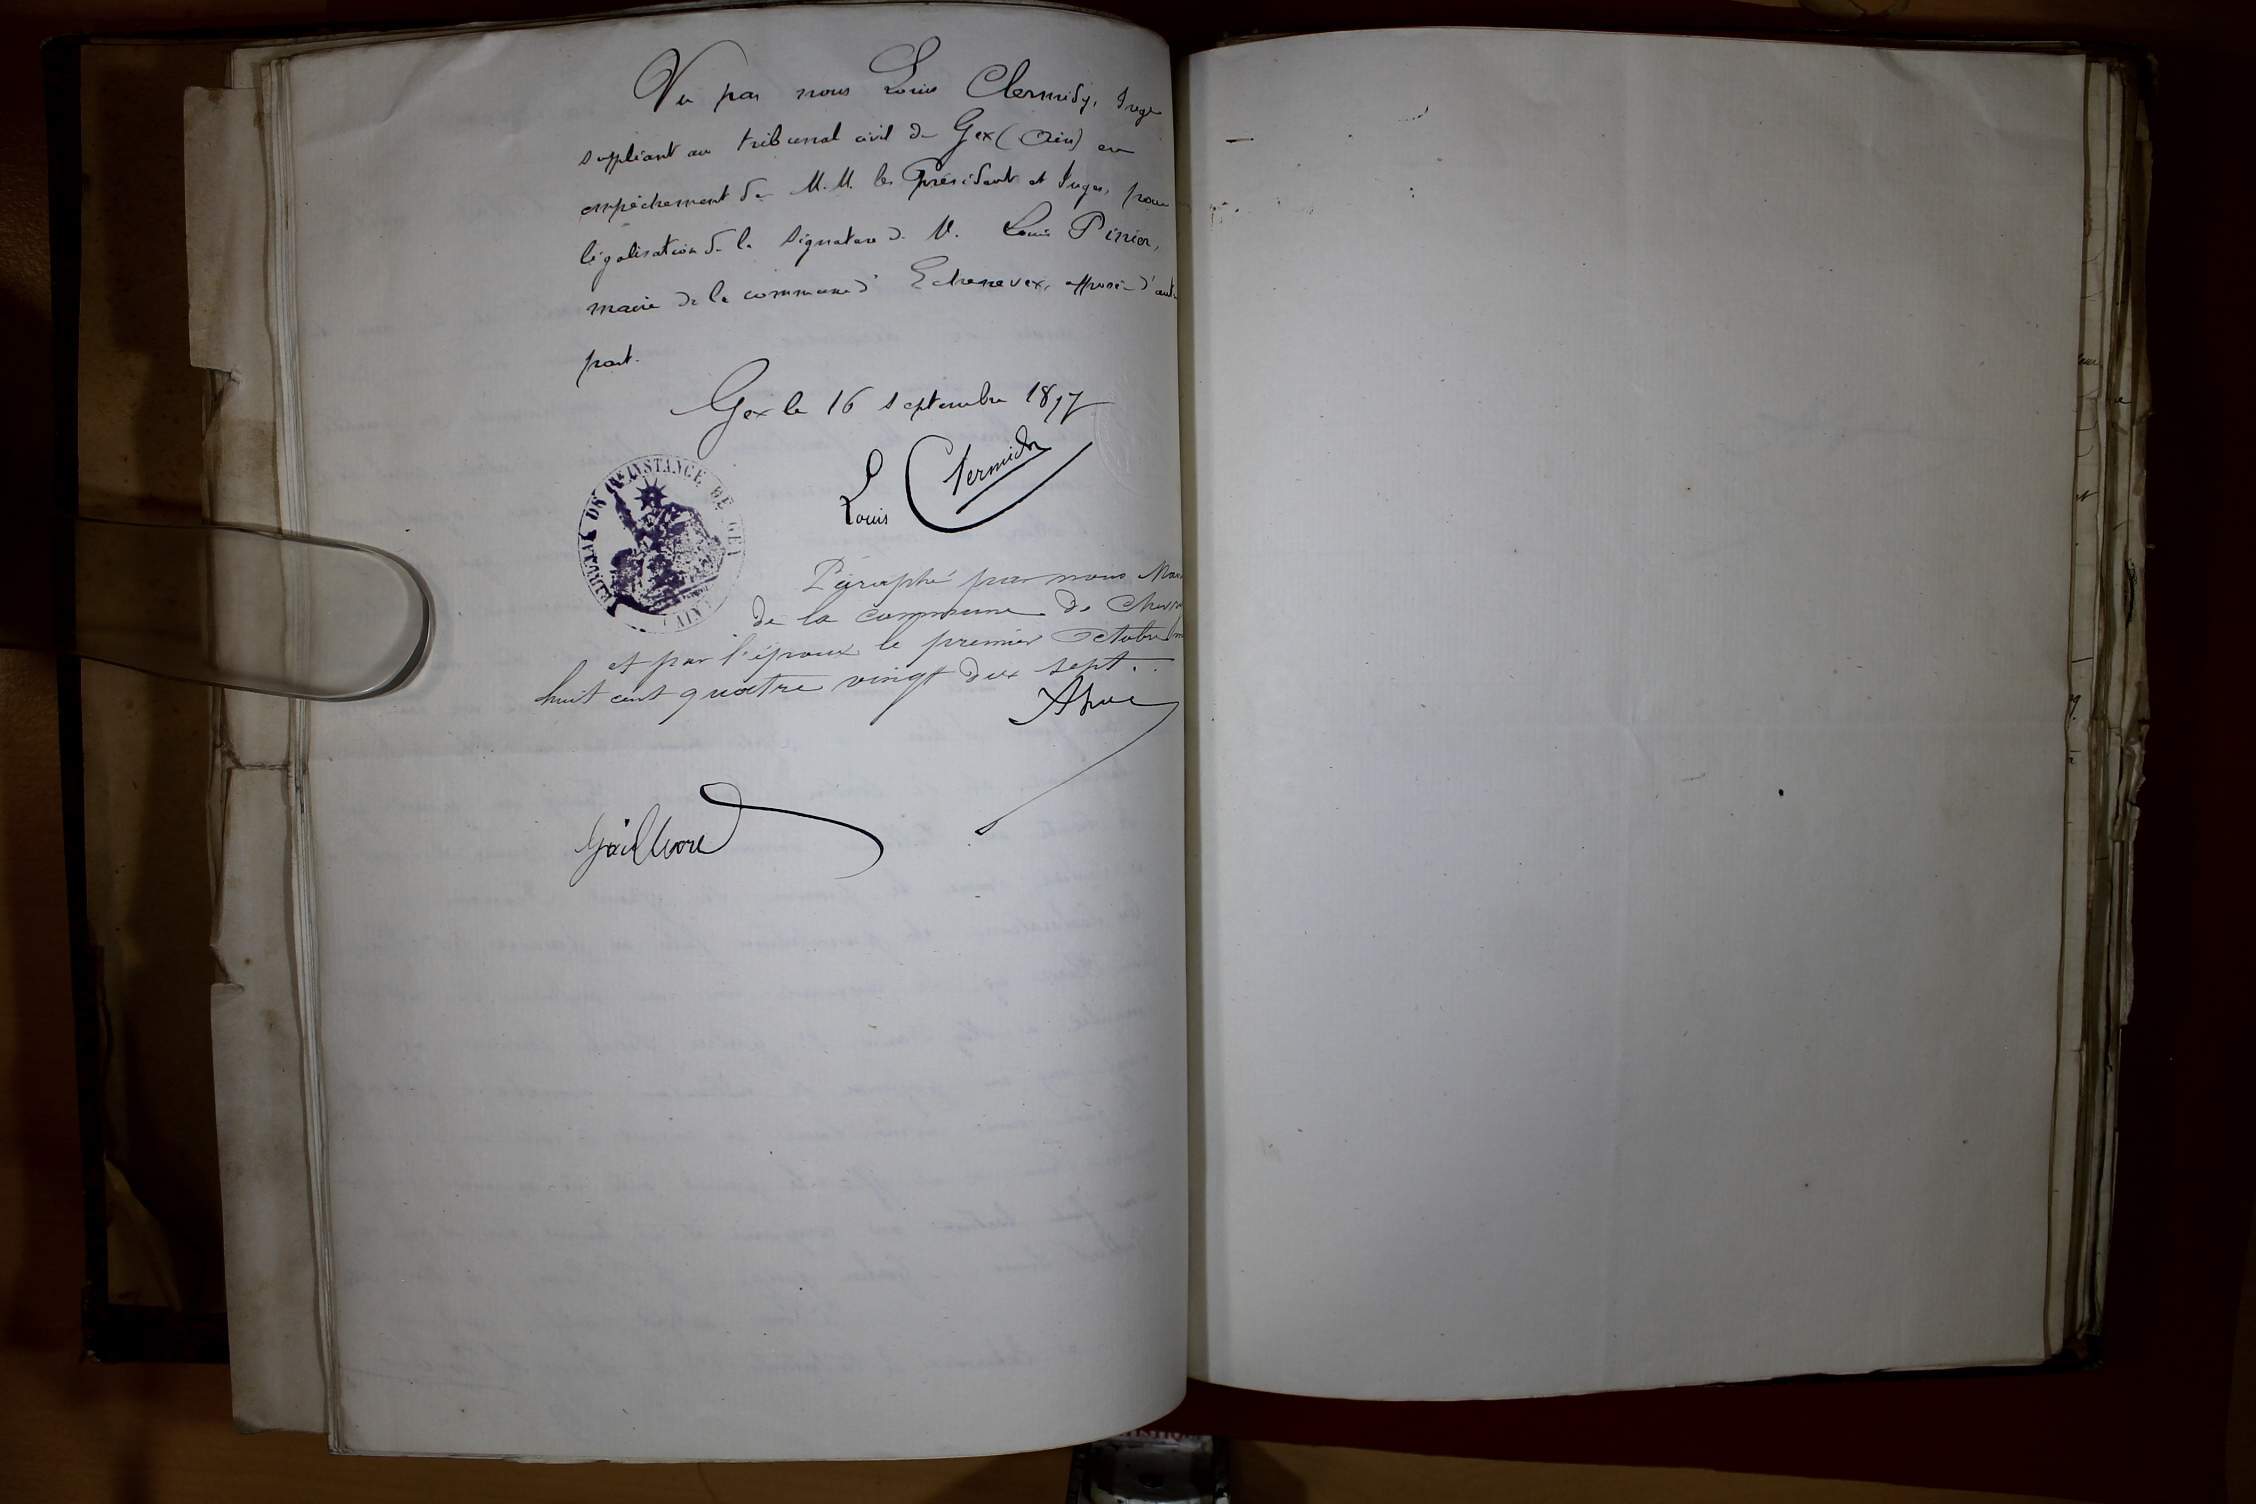 Vu par nous Louis Clermidy, Juge
suppléant au tribunal civil de Gex (Ain) en
empêchement de M.M. les Président et Juges, pour
légalisation de la signature de M. Louis Pinier,
maire de la commune d'Echenevex, apposée d'autre
part.
Gex le 16 septembre 1897
Louis Clermidy
TRIBUNAL DE 1RE INSTANCE DE GEX
(AIN)
Paraphé par nous Mair
de la commune de
et par l'époux le premier Octobre m
huit cent quatre vingt dix sept.